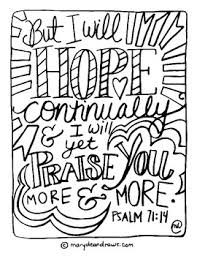 But I will
HOPE
continually
& I will
yet
PRAISE You
MORE & MORE.
PSALM 71:14
© marydeandraws.com